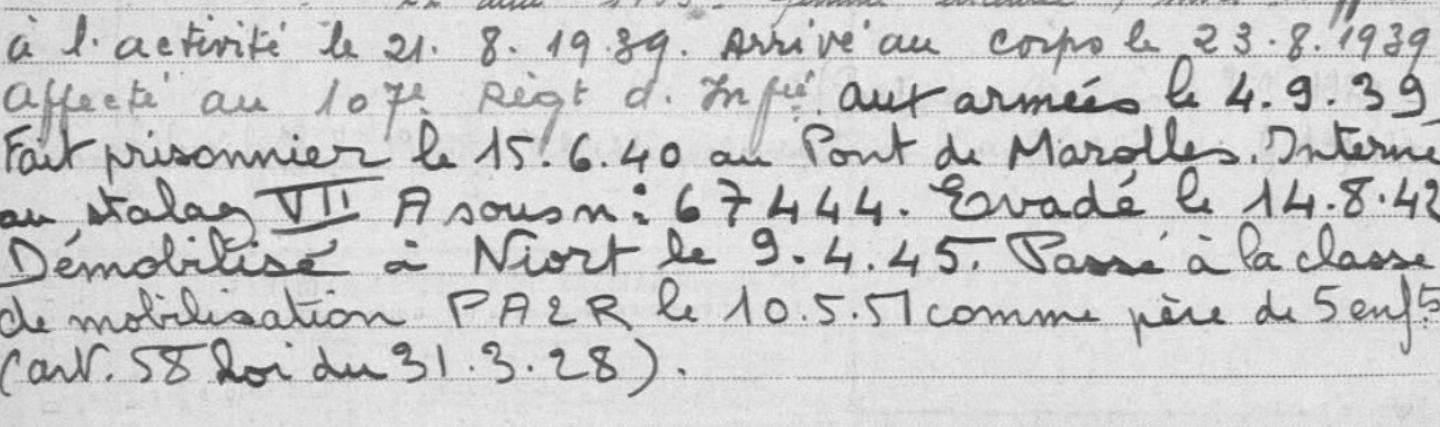 à l'activité le 21. 8. 19.39. Arrivé au corps le 23.8.1939
affecté au 107e Régt d. Infie aux armées le 4.9.39
Fait prisonnier le 15.6.40 au Pont de Marolles. Interné
au stalag VII A sous n: 67444. Evadé le 14.8.42
Démobilisé à Niort le 9.4.45. Passé à la classe
de mobilisation PA2R le 10.5.51 comme père de 5 enfts
(art. 58 Loi du 31.3.28).